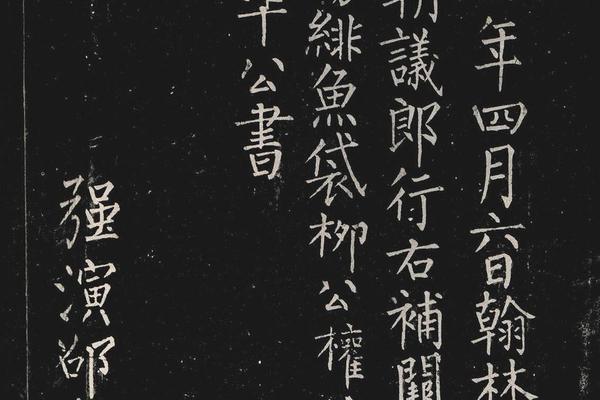 年四月六日翰林
朝議郎行右補闕
緋魚袋柳公權
公書
强演邵